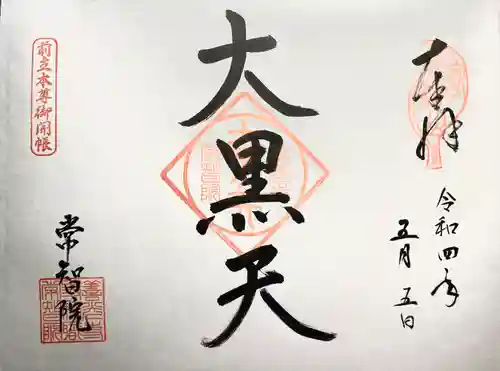 奉拝
令和四年
五月五日
大黒天
前立本尊御開帳
常智院